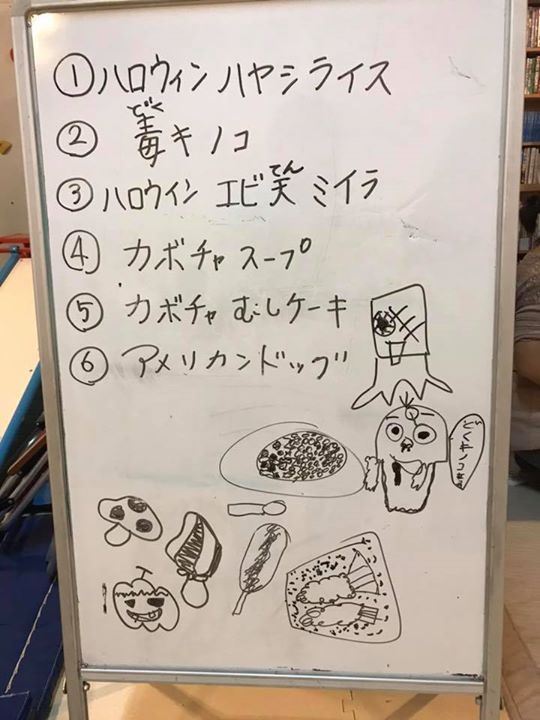 ① ハロウィン ハヤシライス
どく
② 毒キノコ
てん
③ ハロウィン エビ天 ミイラ
④ カボチャ スープ
⑤ カボチャ むしケーキ
⑥ アメリカンドッグ